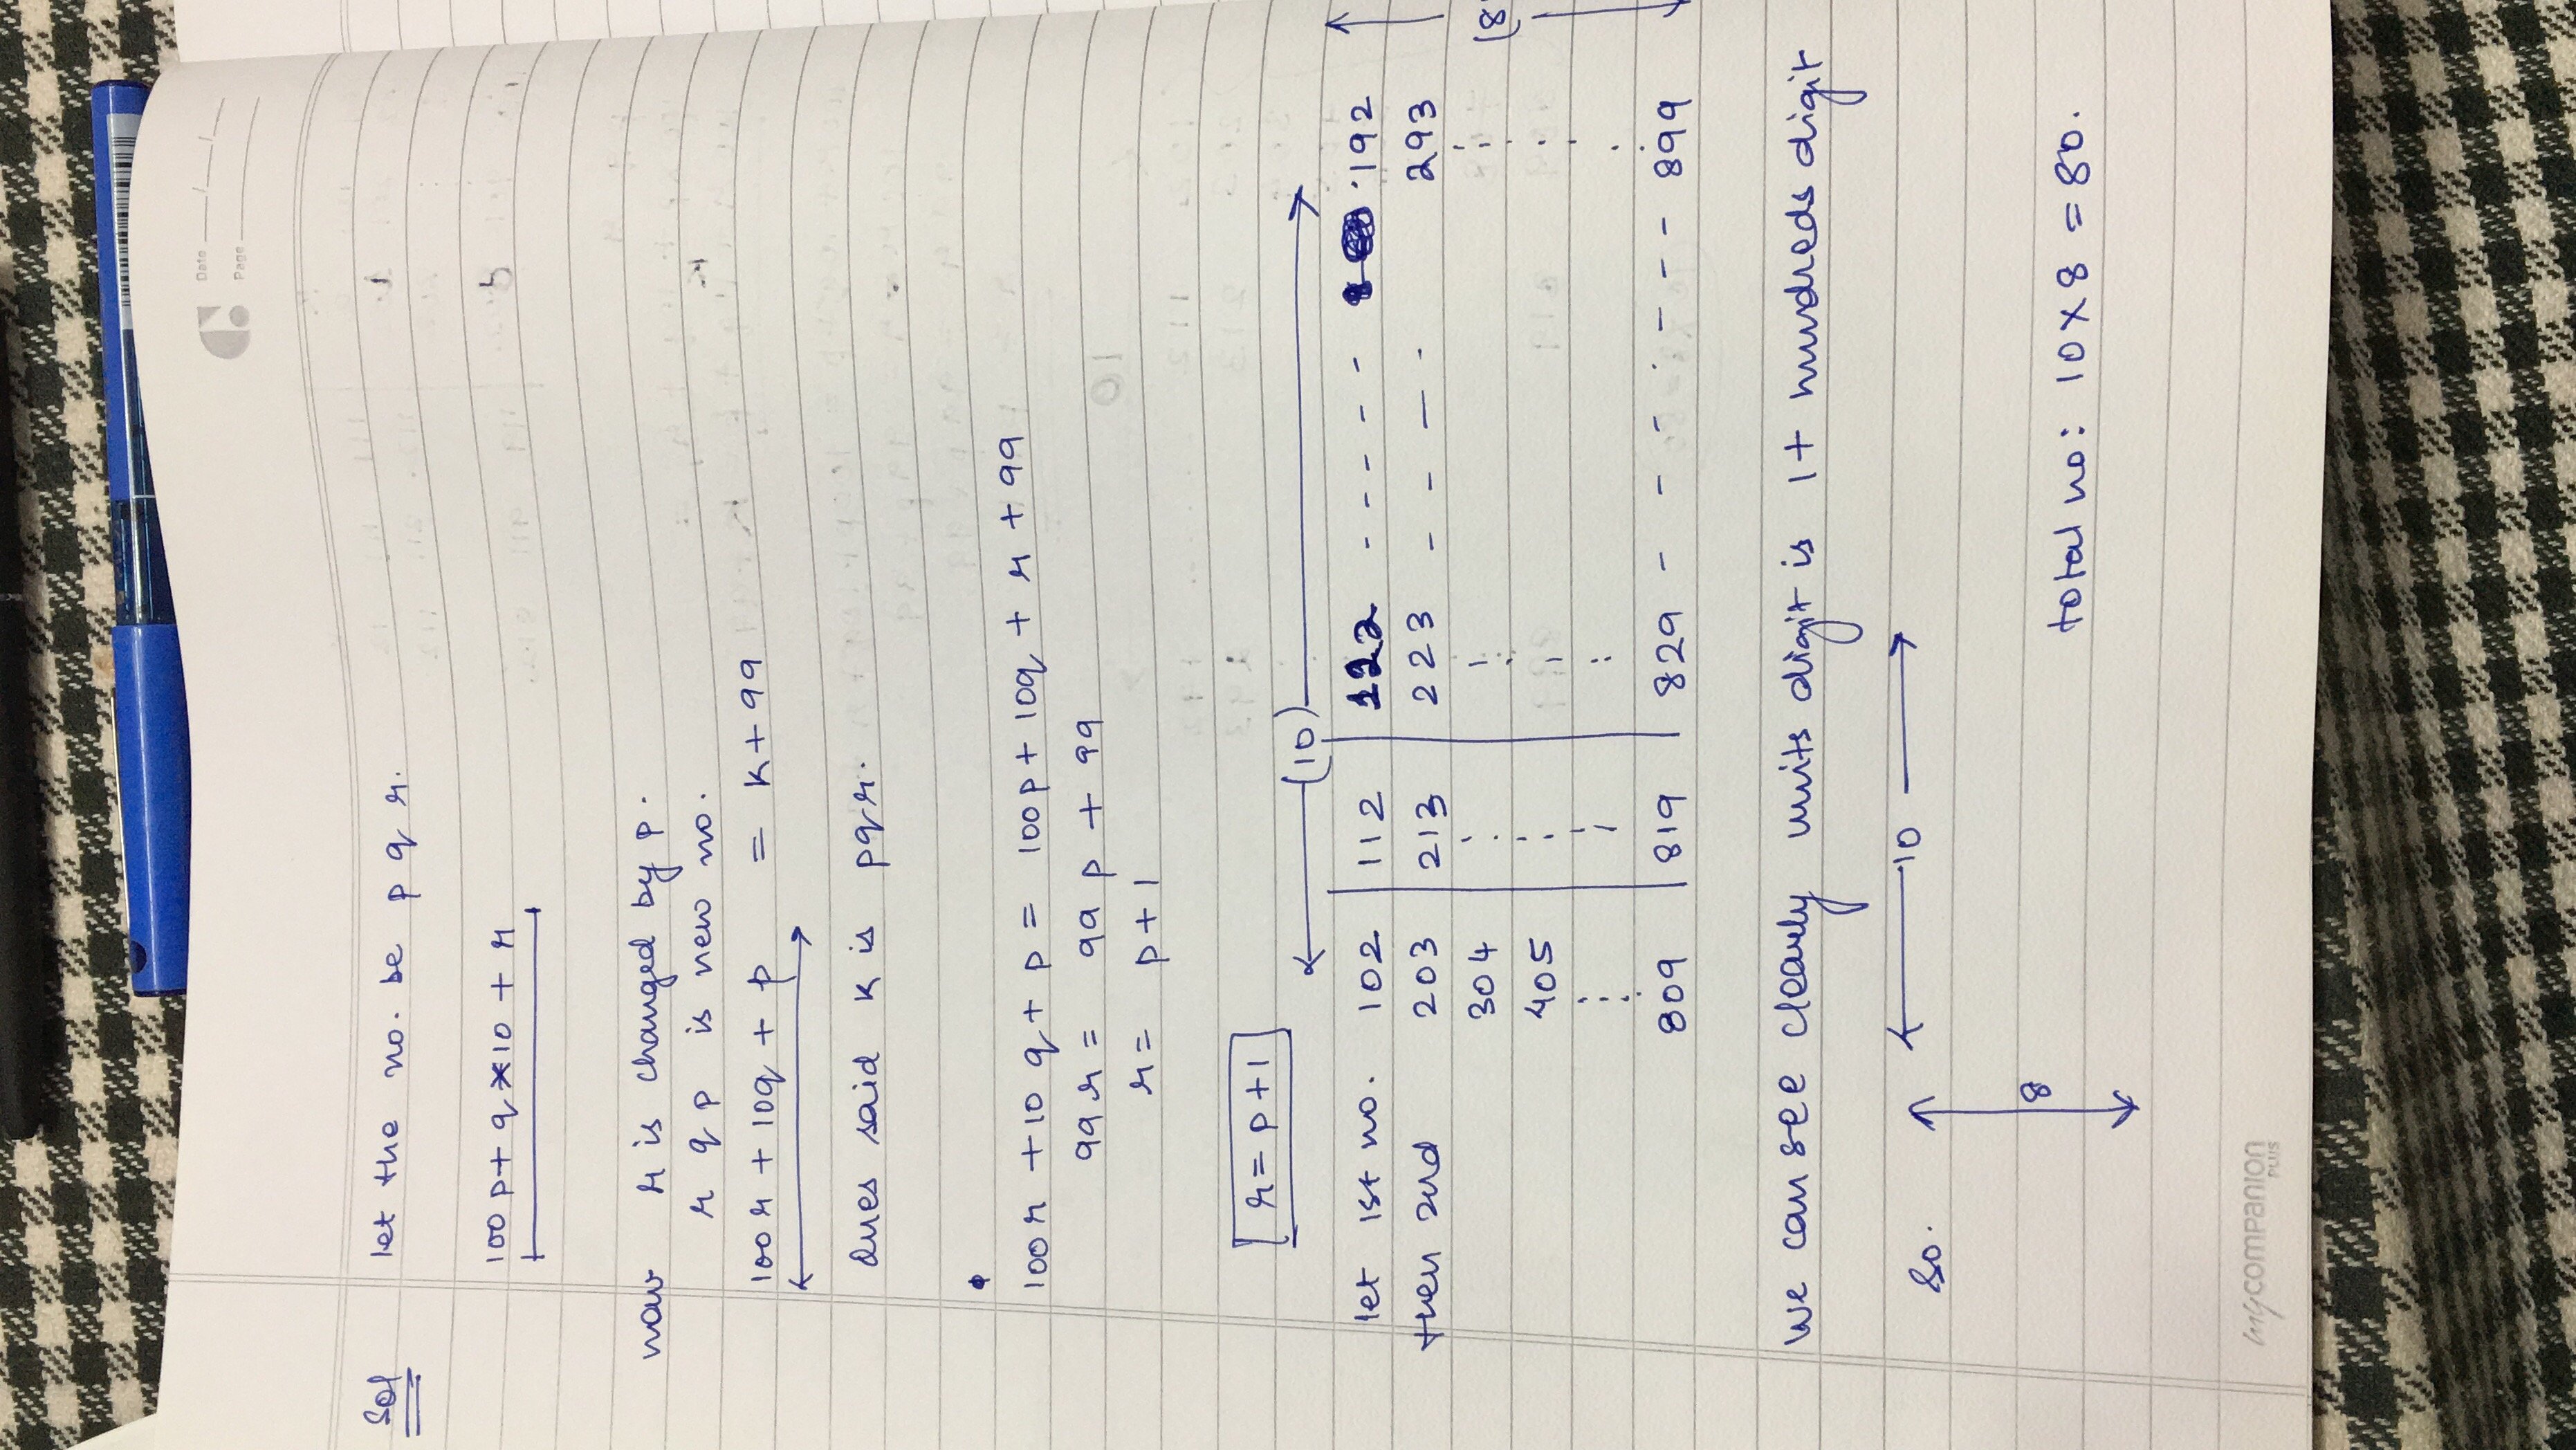 Date
Page
Sol
let the no. be p q r.
100 p + q * 10 + r
now r is changed by p.
r q p is new no.
100 r + 10q + p = k + 99
Ques said k is pqr.
100 r + 10 q + p = 100 p + 10q + r + 99
99 r = 99 p + 99
r = p + 1
r = p + 1
(10)
let 1st no. 102 112 122 - - - - - - 192
then 2nd 203 213 223 - - - - 293
304
405
809 819 829 - - - - - - - 899
(8
We can see clearly units digit is 1 + hundreds digit
So. 10
8
total no: 10 x 8 = 80.
mycompanion
PLUS